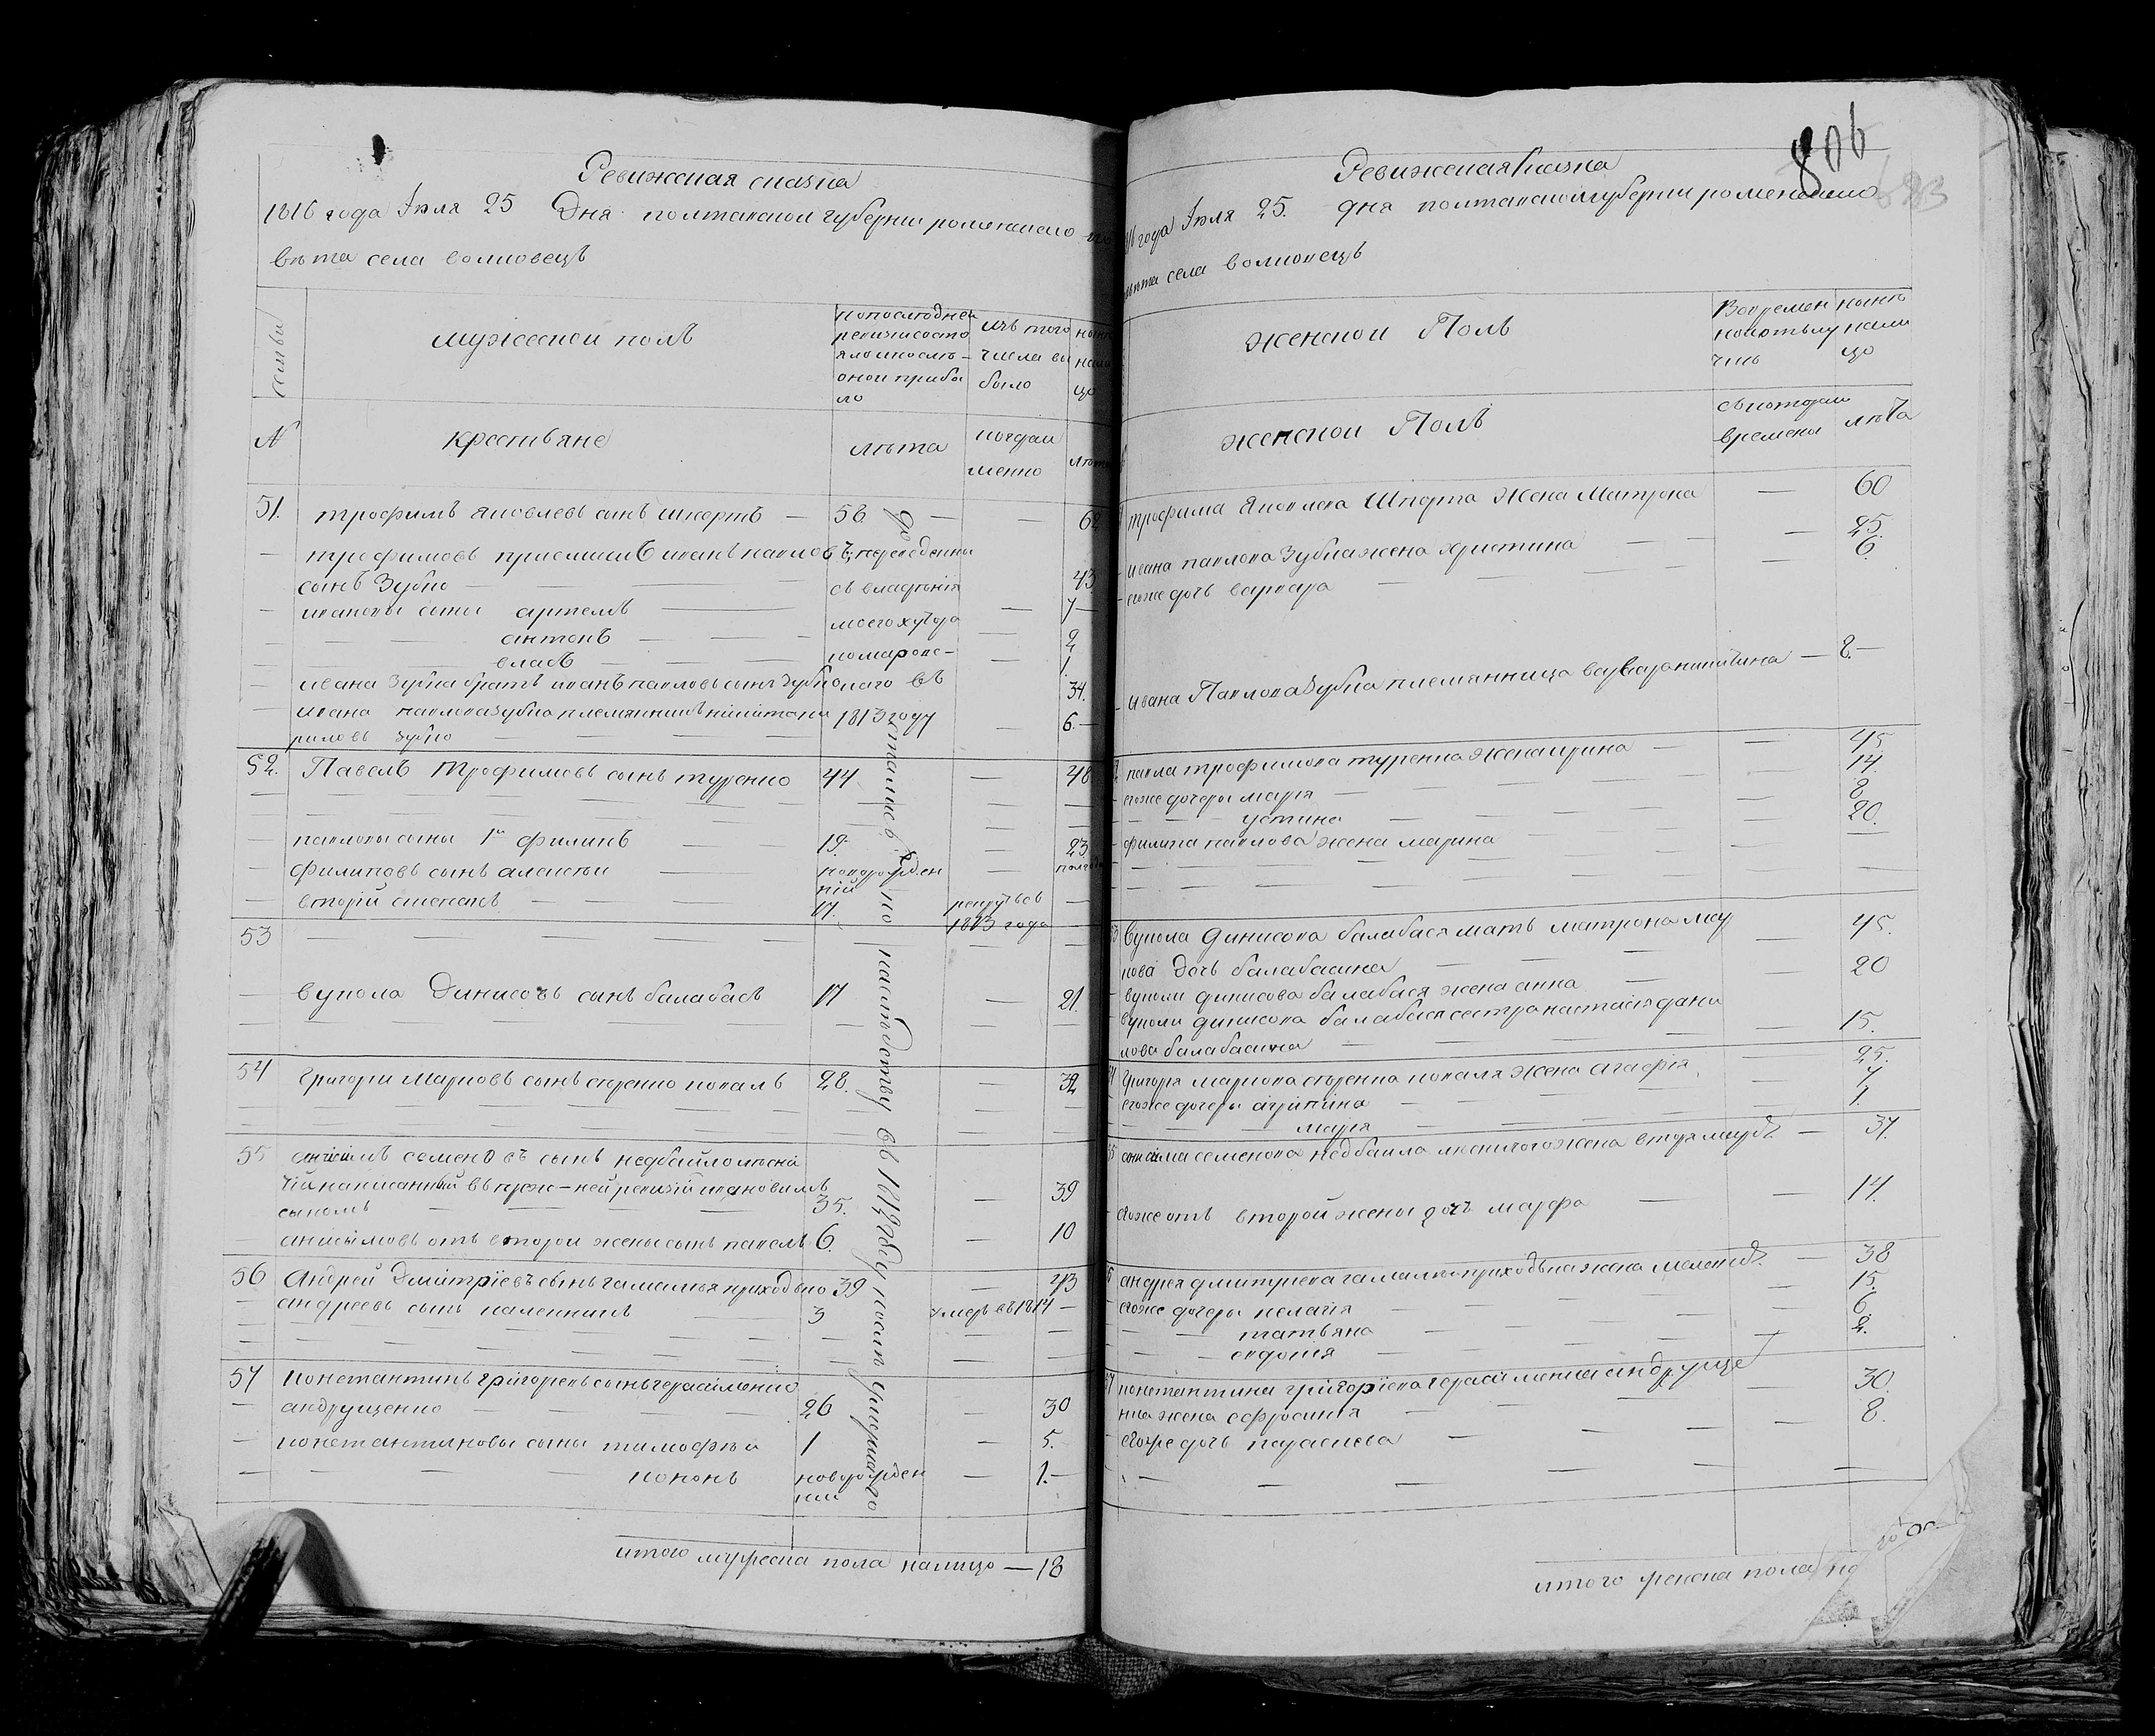 Ревижская сказка
1816 года Іюля 25 Дня полтавской губернии роменского по
вѣта села волковецъ
семьи
мужеской полъ
попоследней
ревизисосто
яло и послѣ
оной прибы
ло
изъ того
числа вы
было
ныне
нали
цо
№
крестьяне
лѣта
когдаи
менно
лѣта
51. трофимъ яковлевъ сынъ шкертъ — 56 — — 62
— трофимовъ приемишъ иванъ павловъ переведенны
сынъ Зубко — съ владѣнія 43
— ивановы сыны артемъ — моего хутора — 7
— антонъ — — 2
— власъ — комаровс- — 1.
— ивана зубка братъ иванъ павловъ сынъ зубко каго въ 34.
— ивана павлова зубка племянникъ никита ки 1813 году — 6.
риловъ зубко
52. Павелъ Трофимовъ сынъ туренко 44 — 48
— павловы сыны 1й филипъ — 19. — 23
— филиповъ сынъ алексѣи — новорожден — полгода
ній
— вторій степанъ — 17. рекрутъ въ
1813 года
53
— вукола Динисовъ сынъ балабась 17 — 21.
54 григори марковъ сынъ сѣренко коваль 28. — 32
55 анисимъ семеновъ сынъ недбайло лѣсні
чій написанный въ преж-ней ревизій ивановимъ
сыномъ — 35. — 39
— анисимовъ отъ второй жены сынъ павелъ 6. — 10
56 Андрей Дмитріевъ сынъ гамалья приходько 39 — 43
— андреевъ сынъ каленникъ — 3 умеръ въ 1814 —
57 константинъ григоревъ сынъ герасименко
— андрущенко — 26 — 30
— константиновы сыны тимофѣй 1 — 5.
— кононъ новорожден — 1.
ній
до стались по наслѣдству въ 1812 году послѣ умершаго
итого мужеска пола налицо — 18
806
Ревижская сказка
года Іюля 25. дня полтавской губернии роменского
вѣта села волковецъ
женской Полъ
Вовремен
ной отлу
чкѣ
ныне
нали
цо
женской Полъ
съ которои
времени
лѣта
трофима Яковлева Шкерта жена Матрона — 60
ивана павлова Зубка жена христина — 25.
егоже дочь варвара — 6.
ивана Павлова Зубка племянница варвара никитина — 8.
павла трофимова туренка жена ирина — 45.
егоже дочеры марія — 14.
устина — 8
филипа павлова жена марина — 20.
вукола динисова балабася мать матрона мар — 45.
кова дочь балабасика
вуколи динисова балабася жена анна — 20
вуколи динисова балабася сестра настасія дани
лова балабасика — 15.
григорія маркова сѣренка коваля жена агафія — 25.
егоже дочеры агрипина — 7
марія — 1.
анисима семенова недбаила лѣсничого жена вторая — 37.
егоже отъ второй жены дочь марфа — 14.
андрея дмитриева гамалѣя приходька жена — 38
егоже дочеры пелагія — 15.
татьяна — 6.
евдокія — 2.
константина григоріева герасименка андруще
нка жена ефросинія — 30.
егоже дочь параскева — 8.
итого женска пола на